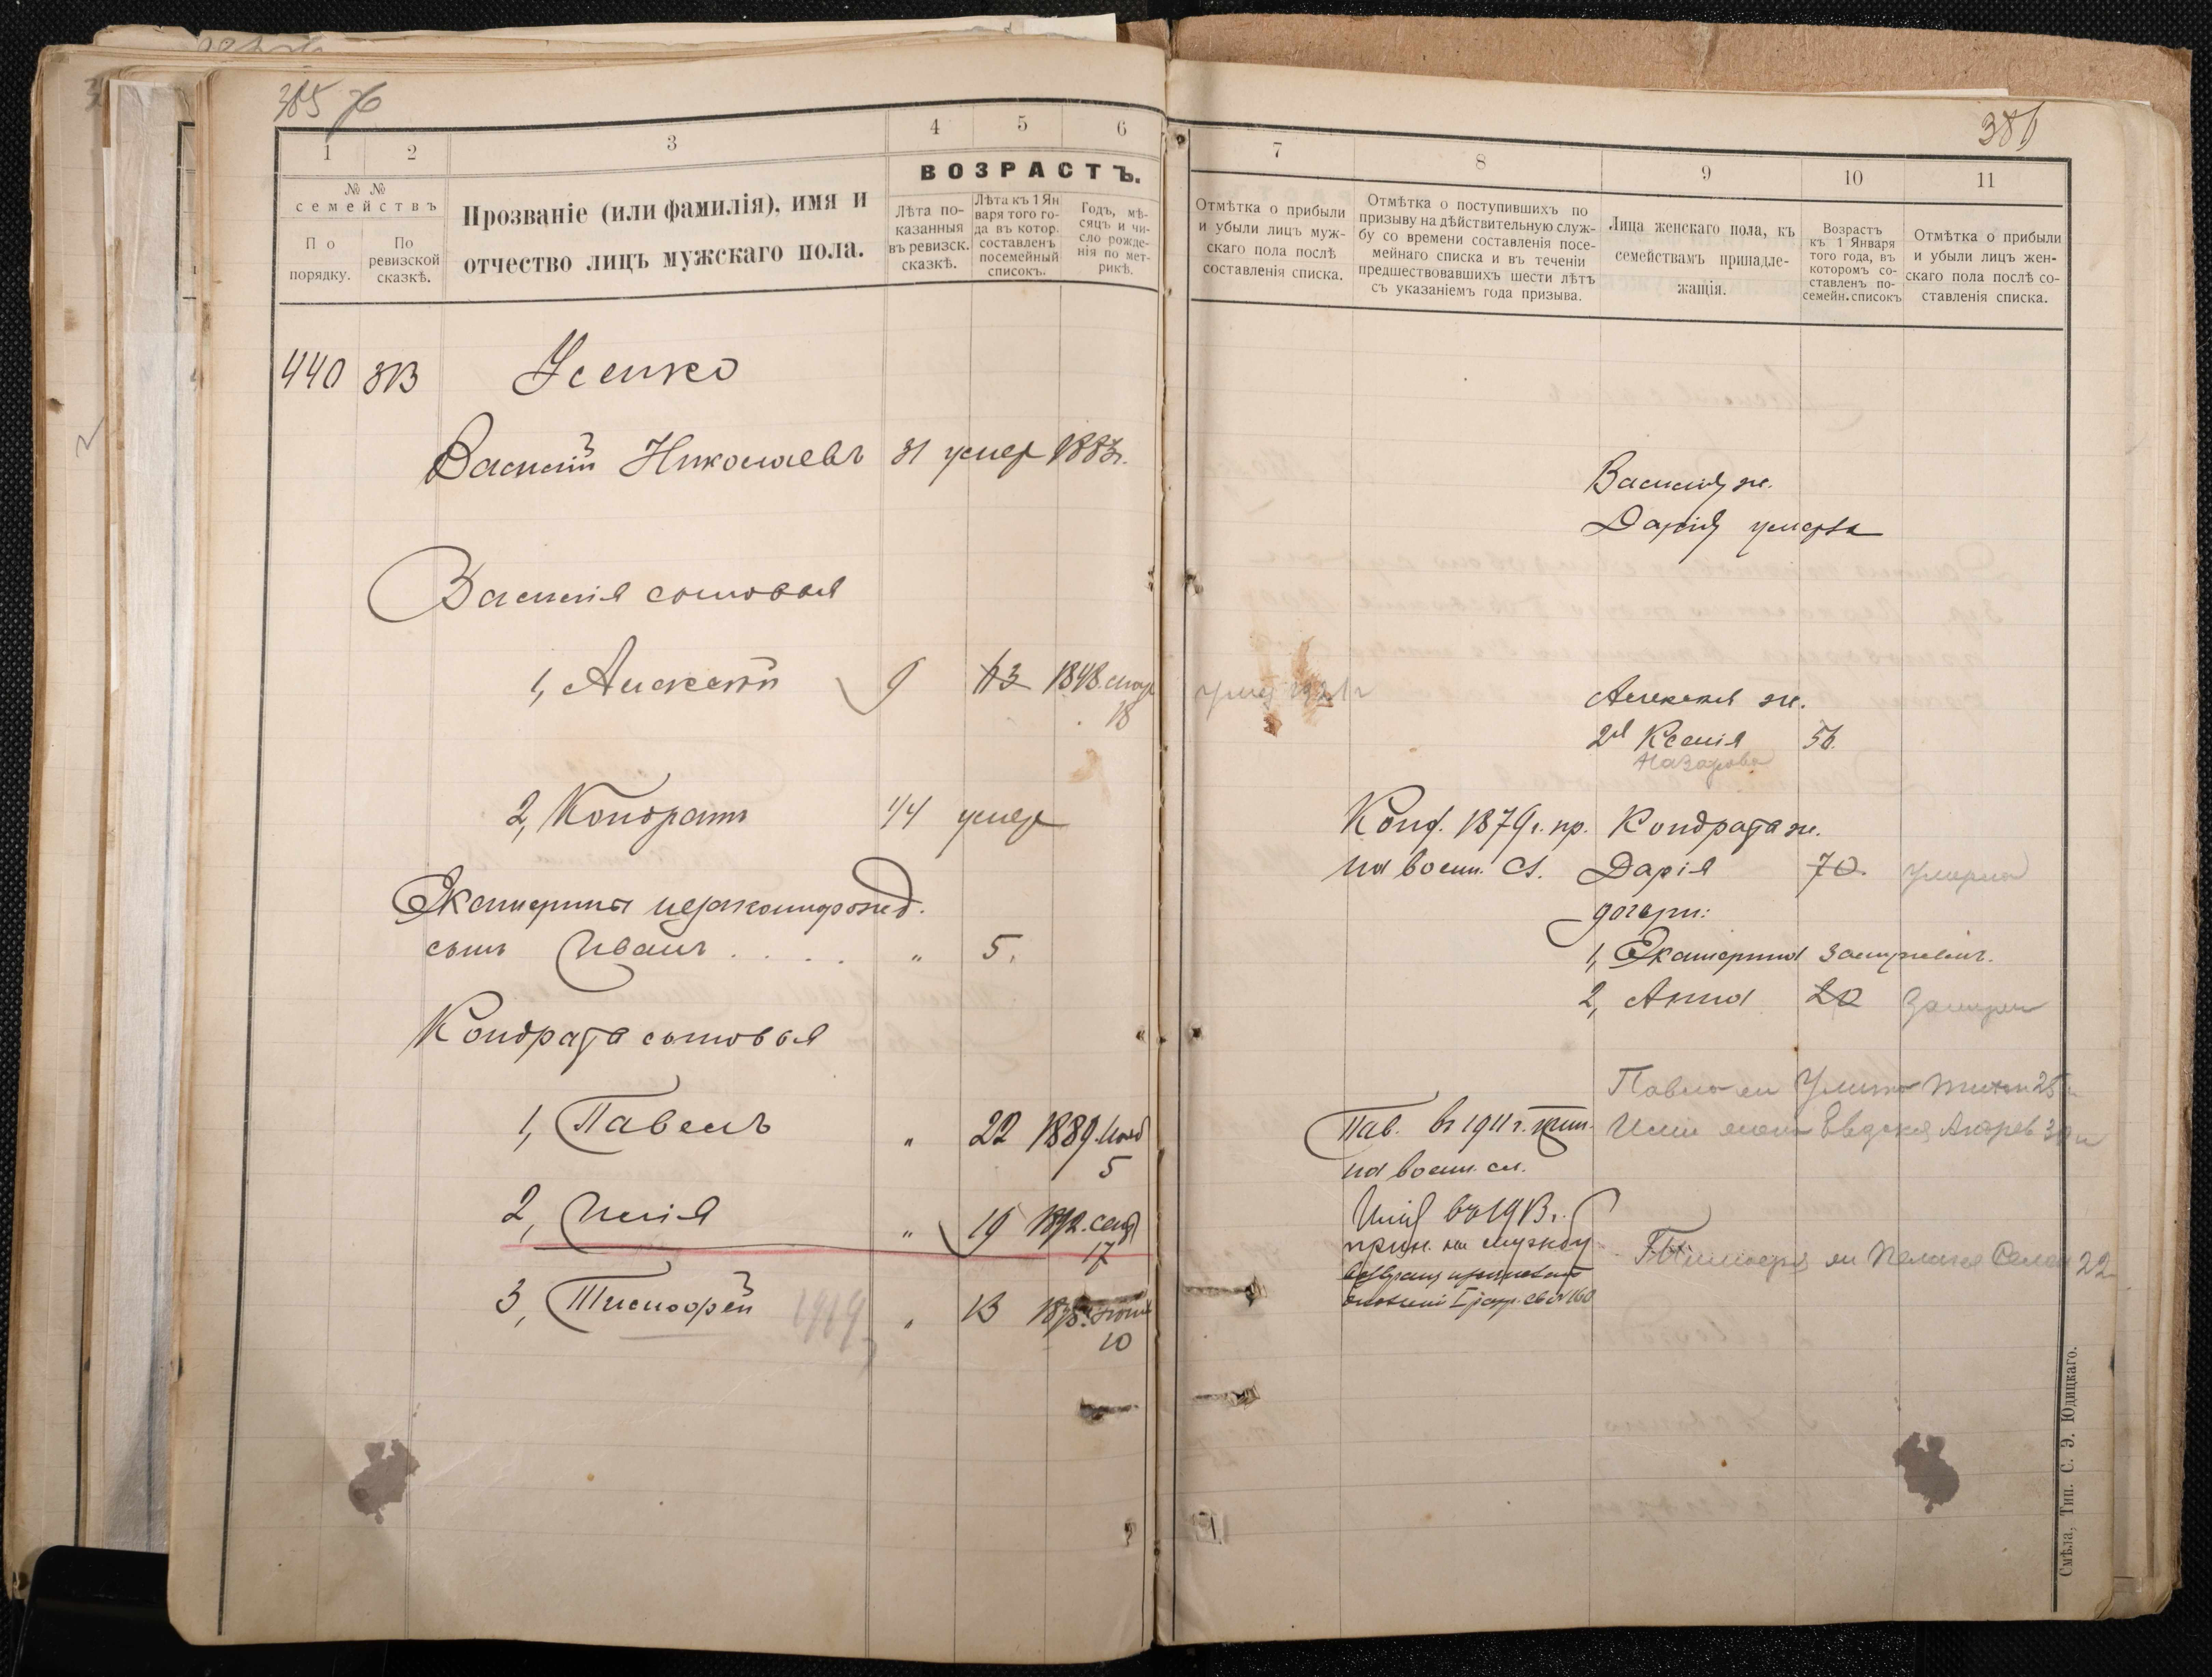 385 76
1
2
3
4
5
6
№ №
семействъ
По
порядку.
По
ревизской
сказкѣ.
Прозваніе (или фамилія), имя и
отчество лицъ мужскаго пола.
ВОЗРАСТЪ.
Лѣта по-
казанныя
въ ревизск.
сказкѣ.
Лѣта къ 1 Ян
варя того го-
да въ котор.
составленъ
посемейный
списокъ.
Годъ, мѣ-
сяцъ и чи-
сло рожде-
нія по мет-
рикѣ.
440 313 Усенко
Василій Николаевъ 31 умер 1883г.
Василія сыновья
1, Алексѣй 9 63 1848.
18
2, Кондратъ 14 умер
Екатерины незаконнорожд.
сынъ Иванъ . . . . " 5.
Кондрата сыновья
1, Павелъ " 22 1889.
5
2, Илія " 19 1892. сент
17
3, Тимофей 1919 " 13
10
386
7
8
9
10
11
Отмѣтка о прибыли
и убыли лицъ муж-
скаго пола послѣ
составленія списка.
Отмѣтка о поступившихъ по
призыву на дѣйствительную служ-
бу со времени составленія посе-
мейнаго списка и въ теченіи
предшествовавшихъ шести лѣтъ
съ указаніемъ года призыва.
Лица женскаго пола, къ
семействамъ принадле-
жащія.
Возрастъ
къ 1 Января
того года, въ
которомъ со-
ставленъ по-
семейн. списокъ
Отмѣтка о прибыли
и убыли лицъ жен-
скаго пола послѣ со-
ставленія списка.
Василія ж.
Дарія умерла
Алексѣя ж.
2я Ксенія 56.
Назарова
Конд. 1879г. пр. Кондрата ж.
на воен. сл. Дарія 70 умерла
дочери:
1, Екатерина замужемъ.
2, Анна 20 замужем
Павла ж
Пав. въ 1911 г. прин.
на воен. сл.
Илія въ 1913г.
прин. на службу
22
Смѣла, Тип. С. Э. Юдицкаго.